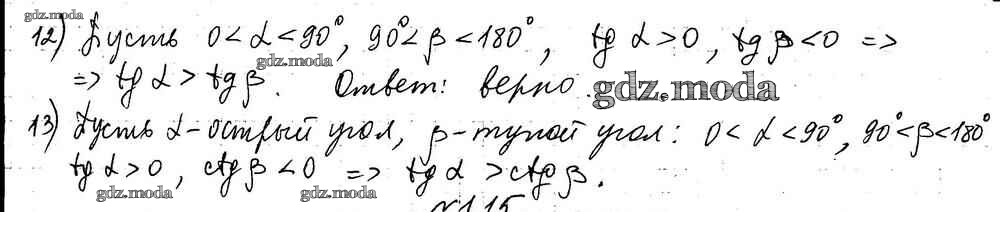 gdz.moda
12) Пусть 0 < α < 90°, 90° < β < 180°, tg α > 0, tg β < 0 =>
gdz.moda
=> tg α > tg β. Ответ: верно. gdz.moda
13) Пусть α - острый угол, β - тупой угол: 0 < α < 90°, 90° < β < 180°
tg α > 0, ctg β < 0 => tg α > ctg β.
gdz.moda gdz.moda